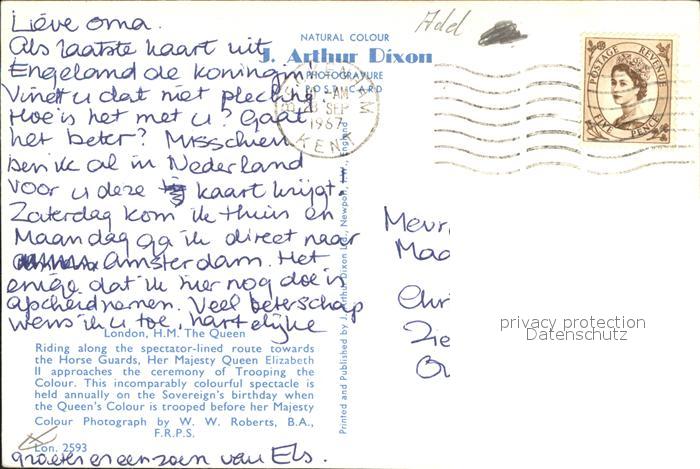 Lieve oma.
Als laatste kaart uit
Engeland de koningin!
Vindt u dat niet plechtig
Hoe is het met u? Gaat
het beter? Misschien
ben ik al in Nederland
voor u deze kaart krijgt.
Zaterdag kom ik thuis en
Maandag ga ik direct naar
Amsterdam. Het
enige dat ik hier nog doe is
afscheidnemen. Veel beterschap
wens ik u toe, hartelijke
groeten en een zoen van Els.
NATURAL COLOUR
J. Arthur Dixon
PHOTOGRAVURE
POST CARD
-AM
SEP
1967
KENT
Add
POSTAGE REVENUE
FIVE PENCE
Printed and Published by J. Arthur Dixon Ltd., Newport, I.W., England
Mevr.
Maa
Chri
Zie
privacy protection
Datenschutz
London, H.M. The Queen
Riding along the spectator-lined route towards
the Horse Guards, Her Majesty Queen Elizabeth
II approaches the ceremony of Trooping the
Colour. This incomparably colourful spectacle is
held annually on the Sovereign's birthday when
the Queen's Colour is trooped before her Majesty
Colour Photograph by W. W. Roberts, B.A.,
F.R.P.S.
Lon. 2593